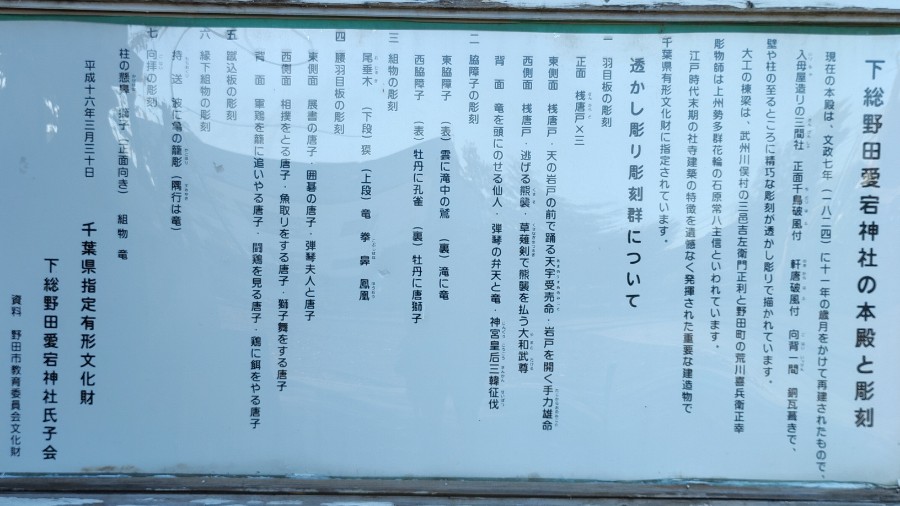 下総野田愛宕神社の本殿と彫刻
現在の本殿は、文政七年（一八二四）に十一年の歳月をかけて再建されたもので、
入母屋造りの三間社　正面千鳥破風付　軒唐破風付　向背一間　銅瓦葺きで、
壁や柱の至るところに精巧な彫刻が透かし彫りで描かれています。
大工の棟梁は、武州川俣村の三邑吉左衛門正利と野田町の荒川喜兵衛正幸
彫物師は上州勢多群花輪の石原常八主信といわれています。
江戸時代末期の社寺建築の特徴を遺憾なく発揮された重要な建造物で
千葉県有形文化財に指定されています。
透かし彫り彫刻群について
一　羽目板の彫刻
正面　桟唐戸×三
東側面　桟唐戸・天の岩戸の前で踊る天宇受売命・岩戸を開く手力雄命
西側面　桟唐戸・逃げる熊襲・草薙剣で熊襲を払う大和武尊
背　面　竜を頭にのせる仙人・弾琴の弁天と竜・神宮皇后三韓征伐
二　脇障子の彫刻
東脇障子　（表）雲に滝中の鷲　（裏）滝に竜
西脇障子　（表）牡丹に孔雀　（裏）牡丹に唐獅子
三　組物の彫刻
尾垂木　（下段）獏　（上段）竜　拳　鼻　鳳凰
四　腰羽目板の彫刻
東側面　展書の唐子・囲碁の唐子・弾琴夫人と唐子
西側面　相撲をとる唐子・魚取りをする唐子・獅子舞をする唐子
背　面　軍鶏を籠に追いやる唐子・闘鶏を見る唐子・鶏に餌をやる唐子
五　蹴込板の彫刻
六　縁下組物の彫刻
持　送　波に亀の籠彫（隅行は竜）
七　向拝の彫刻
柱の懸鼻　獅子（正面向き）　組物　竜
平成十六年三月三十日
千葉県指定有形文化財
下総野田愛宕神社氏子会
資料　野田市教育委員会文化財